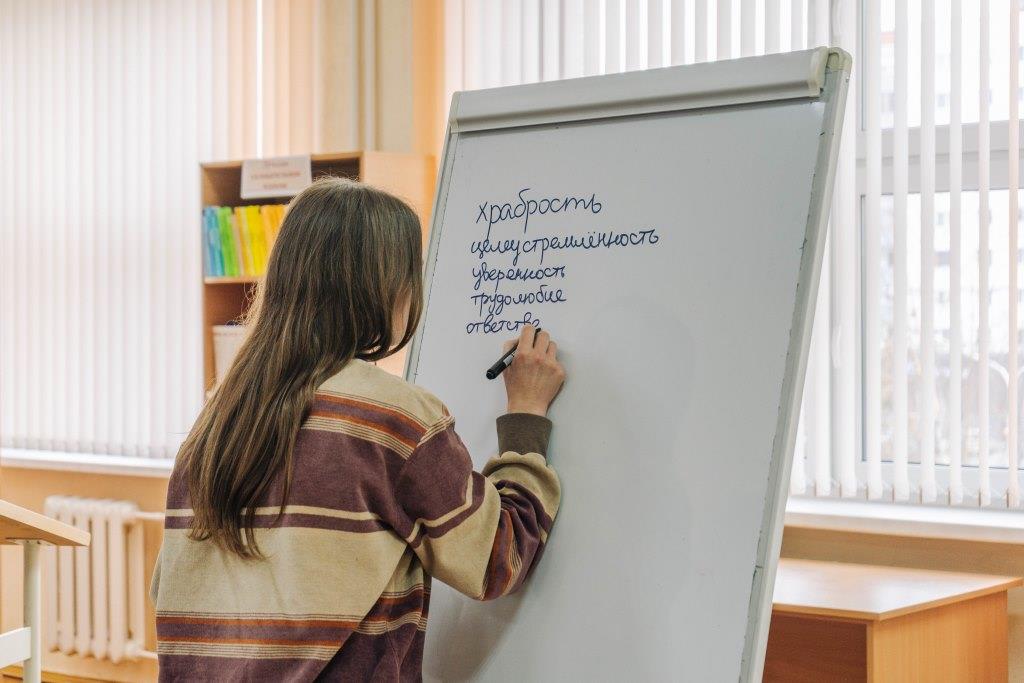 храбрость
целеустремлённость
уверенность
трудолюбие
ответстве